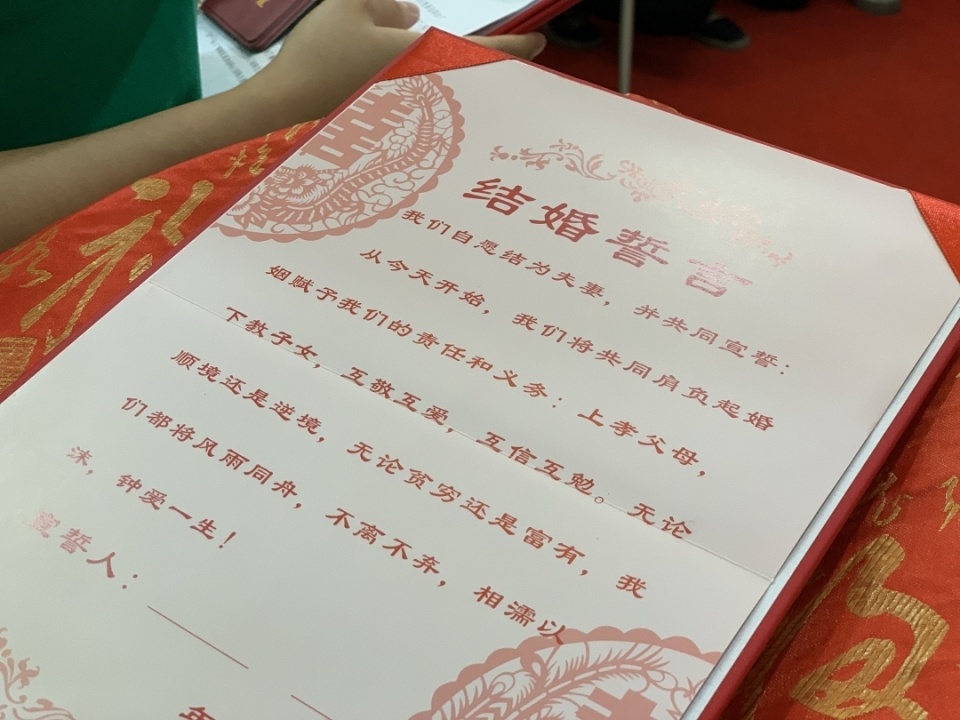 囍
结婚誓言
我们自愿结为夫妻，并共同宣誓：
从今天开始，我们将共同肩负起婚
姻赋予我们的责任和义务：上孝父母，
下教子女，互敬互爱，互信互勉。无论
顺境还是逆境，无论贫穷还是富有，我
们都将风雨同舟，不离不弃，相濡以
沫，钟爱一生！
宣誓人：
年